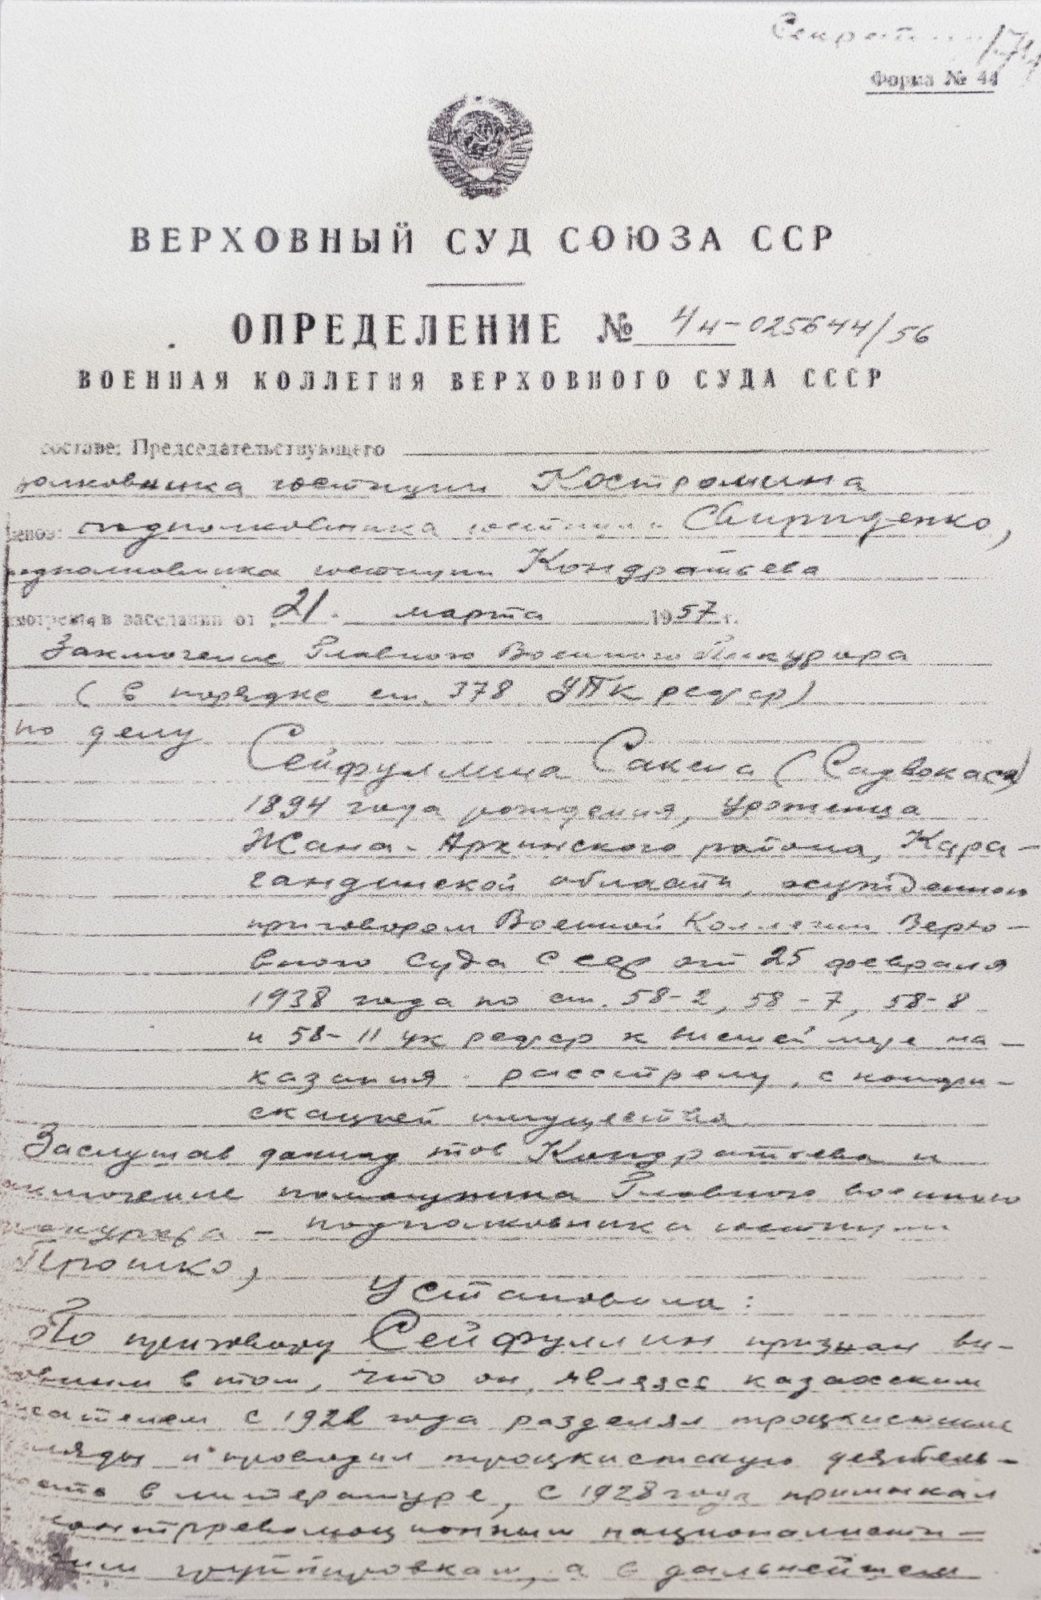 Секретно
Форма № 44
ВЕРХОВНЫЙ СУД СОЮЗА ССР
ОПРЕДЕЛЕНИЕ № 4н-025644/56
ВОЕННАЯ КОЛЛЕГИЯ ВЕРХОВНОГО СУДА СССР
составе: Председательствующего
полковника юстиции Костромина
членов: подполковника юстиции Свириденко,
подполковника юстиции Кондратьева
смотрела в заседании от 21 марта 1957 г.
Заключение Главного Военного Прокурора
(в порядке ст. 378 УПК РСФСР)
по делу
Сейфуллина Сакена (Садвокаса)
1894 года рождения, уроженца
Жана-Аркинского района, Кара-
гандинской области, осужденного
приговором Военной Коллегии Верхо-
вного Суда СССР от 25 февраля
1938 года по ст. 58-2, 58-7, 58-8
и 58-11 УК РСФСР к высшей мере на-
казания - расстрелу, с конфи-
скацией имущества.
Заслушав доклад тов Кондратьева и
заключение помощника Главного военного
прокурора - подполковника юстиции
Прошко,
Установила:
По приговору Сейфуллин признан ви-
новным в том, что он, являясь казахским
писателем с 1922 года разделял троцкистские
взгляды и проводил троцкистскую деятель-
ность в литературе, с 1928 года примыкал
контрреволюционным националисти-
ческим группировкам, а в дальнейшем